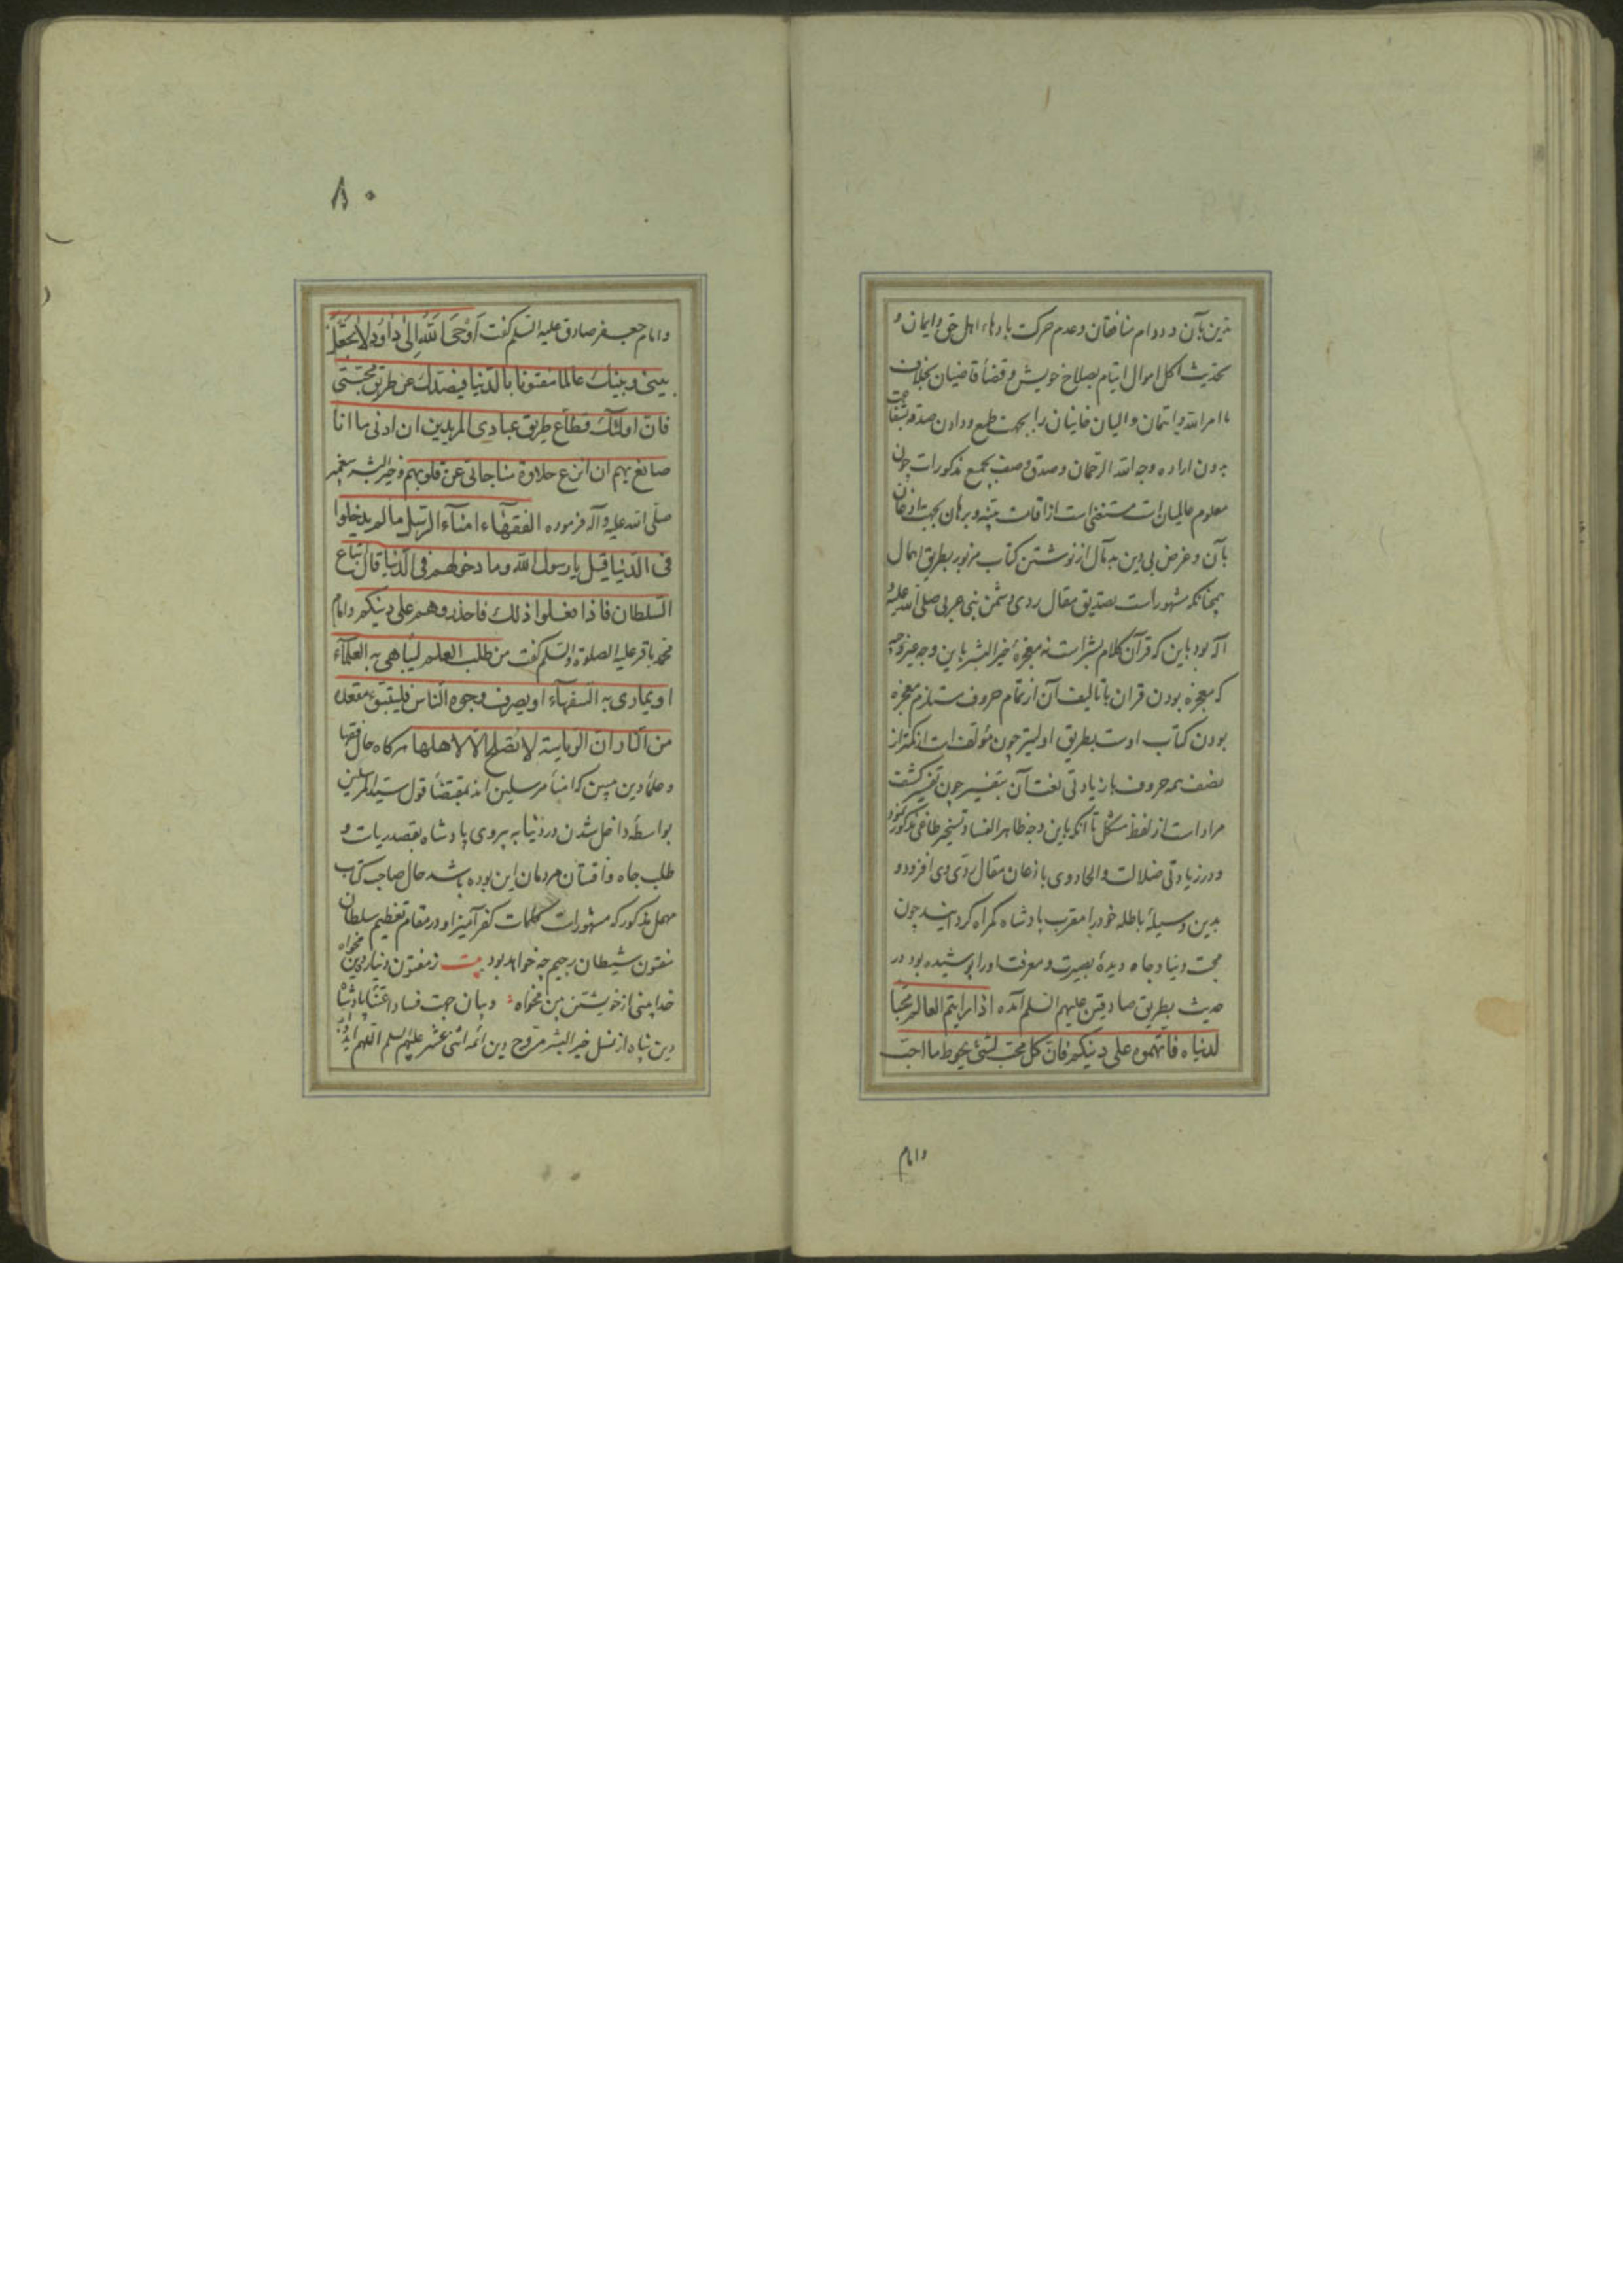 تزین بآن و دوام منافقان و عدم حرکت بادهاء اهل حق و ایمان و
تحدیث اکل اموال ایتام بصلاح خویش و قضاء قاضیان بخلاف
ما امر الله و ایتمان والیان خاینان را بجهت طمع و دادن صدقه بشفاعت
بدون اراده وجه الله الرحمان و صدق وصف بجمع مذکورات چون
معلوم عالمیان است مستغنی است از اقامت بینه و برهان بجهت اذعان
بآن و غرض بی دین بدمآل از نوشتن کتاب مزبور بطریق اهمال
چنانکه مشهور است تصدیق مقال ردی دشمن نبی عربی صلی الله علیه و
آله بود باین که قرآن کلام بشر است نه معجزهٔ خیر البشر باین وجه غیر وجیه
که معجزه بودن قران با تالیف آن از تمام حروف مستلزم معجزه
بودن کتاب اوست بطریق اولیتر چون مؤلف است از کمتر از
نصف همه حروف با زیادتی لغت آن بتفسیر چون تفسیر کشف
مراد است از لفظ مشکل تا آنکه باین وجه ظاهر الفساد تسخیر طاغی مذکور نمود
و در زیادتی ضلالت و الحاد وی باذعان مقال ردی وی افزود و
بدین وسیلهٔ باطله خود را مقرب پادشاه گمراه گردانید چون
محبت دنیا و جاه دیدهٔ بصیرت و معرفت او را پوشیده بود در
حدیث بطریق صادقین علیهم السلم آمده اذا رایتم العالم محبا
لدنیاه فاتهموه علی دینکم فان کل محب لشئ یحوط ما احب
وامام
۸۰
و امام جعفر صادق علیه السلم گفت اوحی الله الی داود لا تجعل
بینی و بینک عالما مفتونا بالدنیا فیصدک عن طریق محبتی
فان اولئک قطاع طریق عبادی المریدین ان ادنی ما انا
صانع بهم ان انزع حلاوة مناجاتی عن قلوبهم و خیر البشر پیغمبر
صلی الله علیه و آله فرموده الفقهاء امناء الرسل ما لم یدخلوا
فی الدنیا قیل یا رسول الله و ما دخولهم فی الدنیا قال اتباع
السلطان فاذا فعلوا ذلک فاحذروهم علی دینکم و امام
محمد باقر علیه الصلوة و السلم گفت من طلب العلم لیباهی به العلماء
او یماری به السفهاء او یصرف وجوه الناس فلیتبوء مقعده
من النار ان الریاسة لا تصلح الا لاهلها هرکاه حال فقها
و علماء دین مبین که امناء مرسلین اند بمقتضاء قول سید المرسلین
بواسطه داخل شدن در دنیا به پیروی پادشاه بقصد ریاست و
طلب جاه و مردمان این بوده باشد حال صاحب کتاب
مهمل مذکور که مشهور است کلمات کفر آمیز او در مقام تعظیم سلطان
مفتون شیطان رجیم چه خواهد بود بیت ز مفتون دنیا ره دین مخواه
خدا بینی از خویشتن بین مخواه و بیان جهت فساد اعتناء پادشاه
دین پناه از نسل خیر البشر مروج دین ائمه اثنی عشر علیهم السلم اللهم